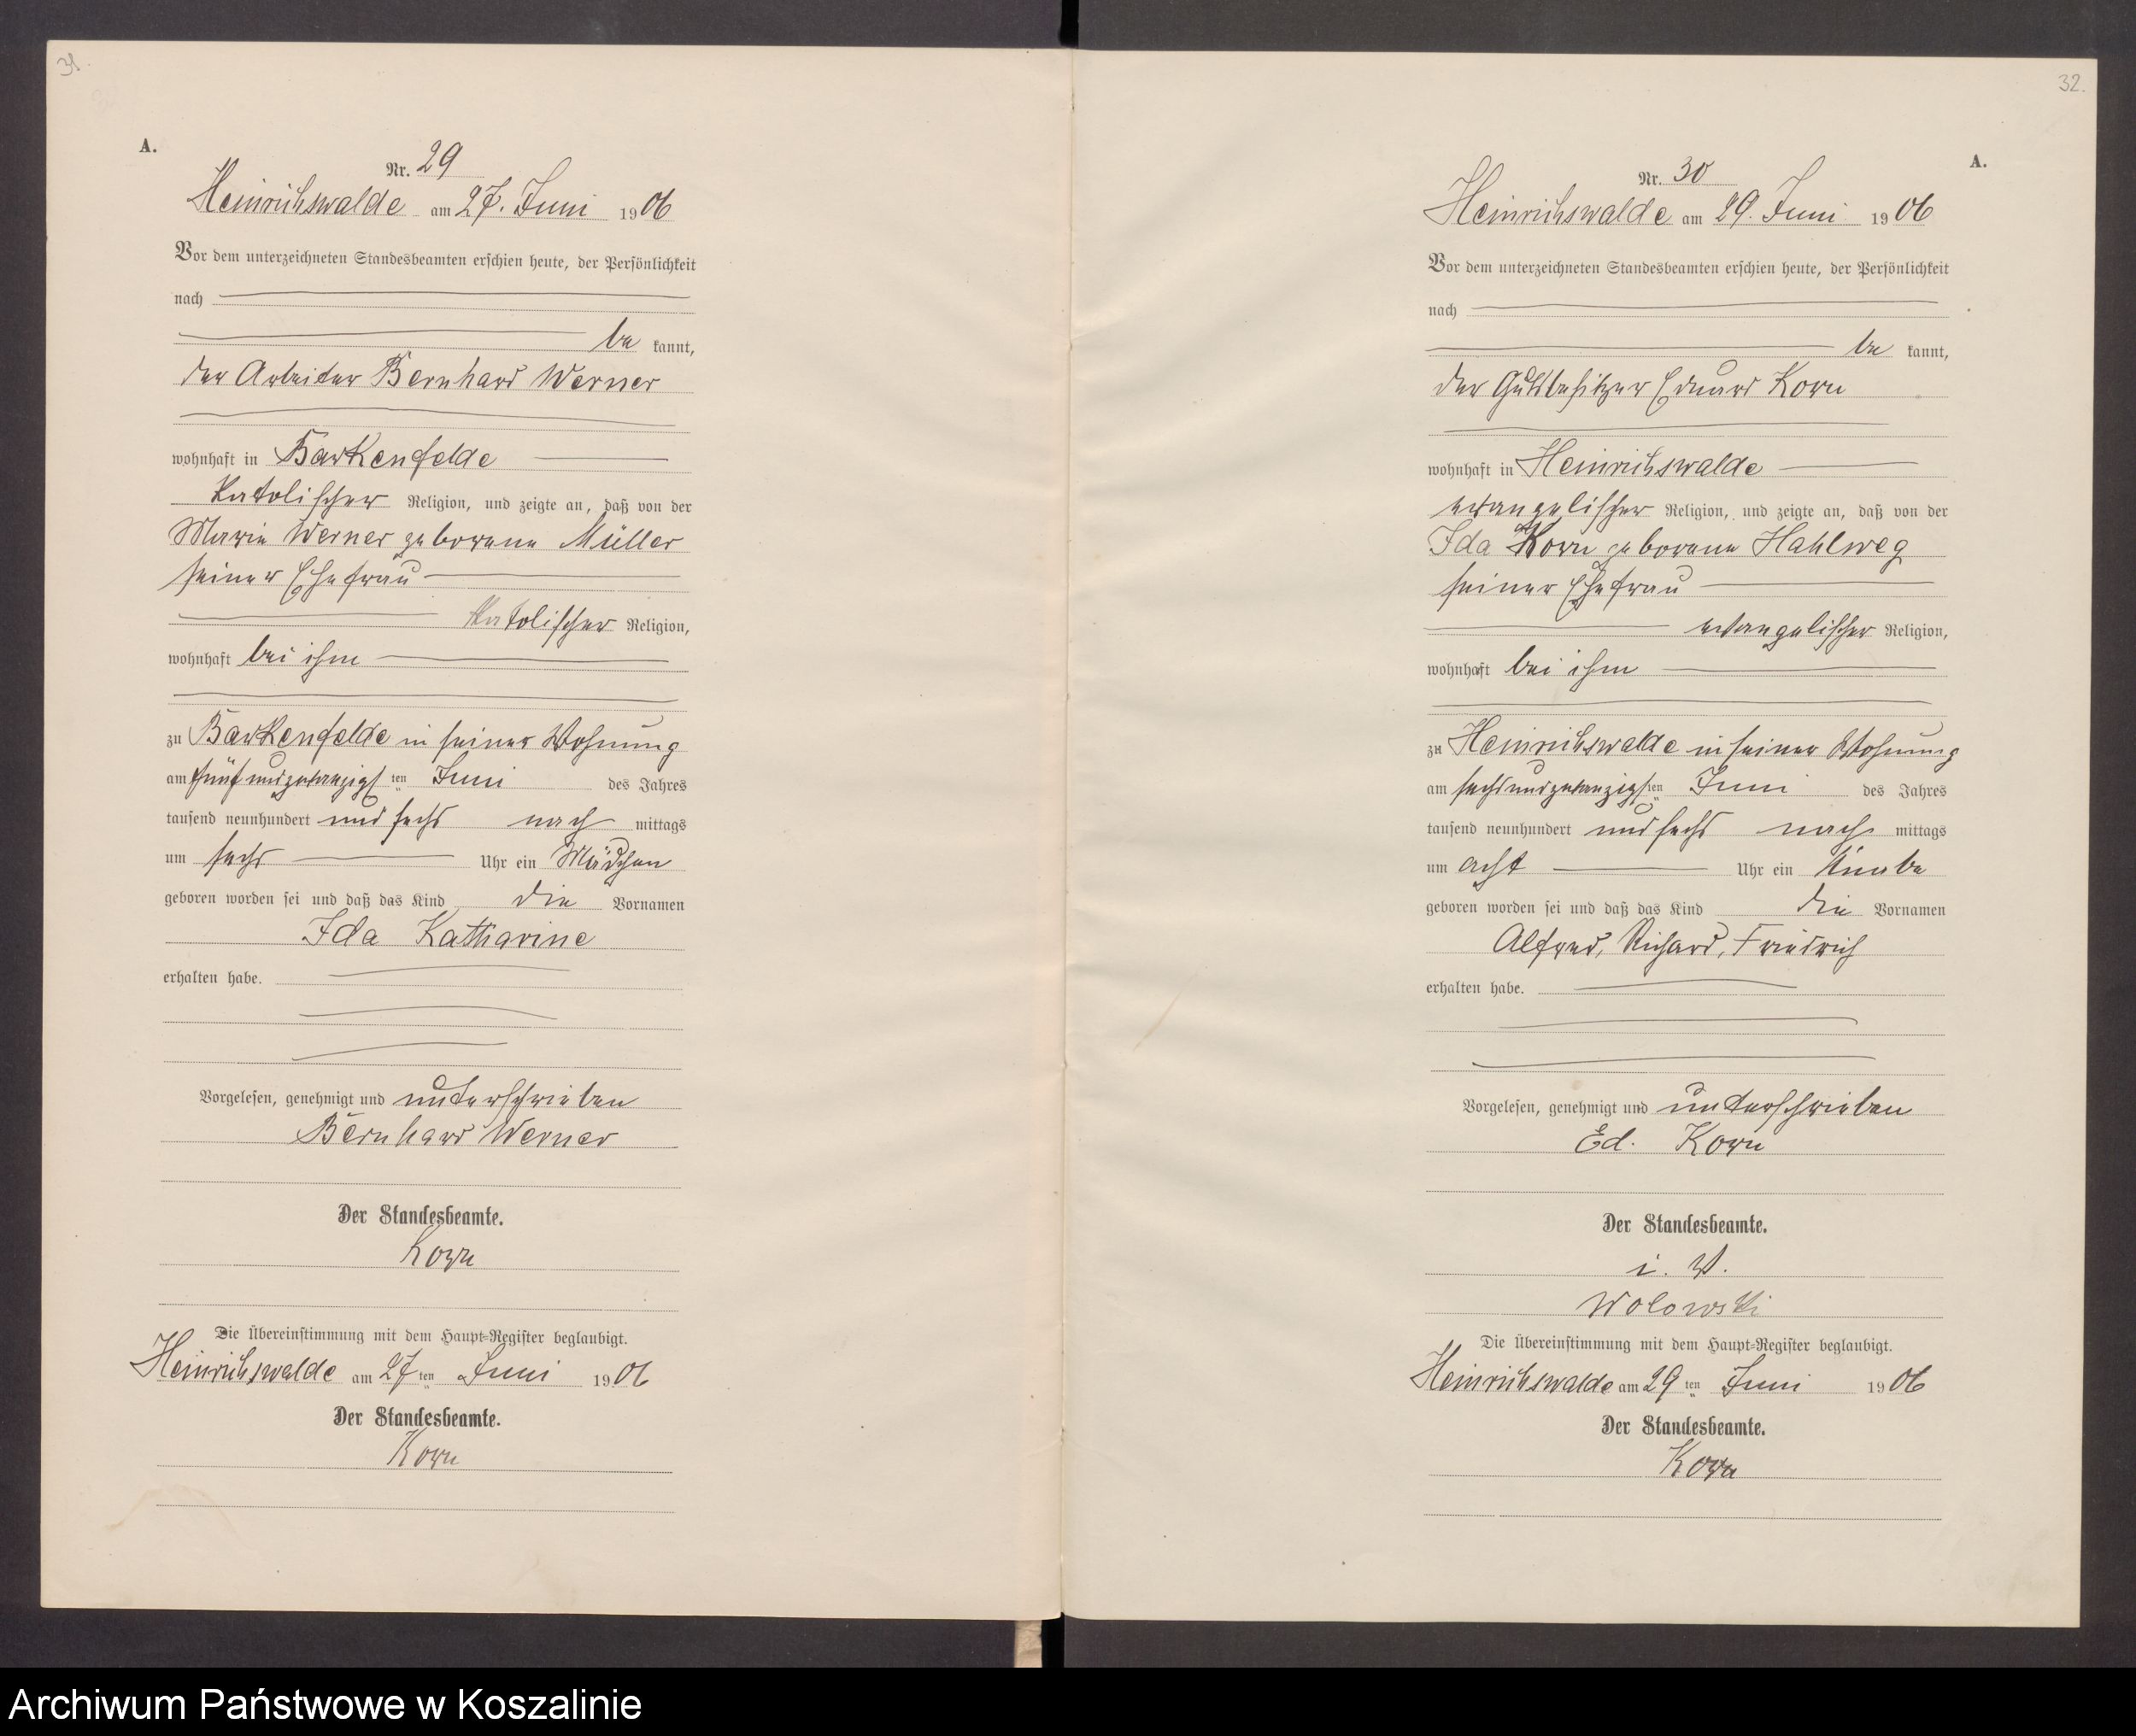 31.
A.
Nr. 29
Heinrichswalde am 27. Juni 1906
Vor dem unterzeichneten Standesbeamten erschien heute, der Persönlichkeit
nach
be kannt,
der Arbeiter Bernhard Werner
wohnhaft in Barkenfelde
katolischer Religion, und zeigte an, daß von der
Marie Werner geborene Müller
seiner Ehefrau
katolischer Religion,
wohnhaft bei ihm
zu Barkenfelde in seiner Wohnung
am fünfundzwanzigsten Juni des Jahres
tausend neunhundert und sechs nach mittags
um sechs Uhr ein Mädchen
geboren worden sei und daß das Kind die Vornamen
Ida Katharine
erhalten habe.
Vorgelesen, genehmigt und unterschrieben
Bernhard Werner
Der Standesbeamte.
Korn
Die Übereinstimmung mit dem Haupt-Register beglaubigt.
Heinrichswalde am 27ten Juni 1906
Der Standesbeamte.
Korn
32.
A.
Nr. 30
Heinrichswalde am 29. Juni 1906
Vor dem unterzeichneten Standesbeamten erschien heute, der Persönlichkeit
nach
be kannt,
der Gutsbesitzer Eduard Korn
wohnhaft in Heinrichswalde
evangelischer Religion, und zeigte an, daß von der
Ida Korn geborene Hahlweg
seiner Ehefrau
evangelischer Religion,
wohnhaft bei ihm
zu Heinrichswalde in seiner Wohnung
am sechsundzwanzigsten Juni des Jahres
tausend neunhundert und sechs nach mittags
um acht Uhr ein Knabe
geboren worden sei und daß das Kind die Vornamen
Alfred, Richard, Friedrich
erhalten habe.
Vorgelesen, genehmigt und unterschrieben
Ed. Korn
Der Standesbeamte.
i. V.
Wolowski
Die Übereinstimmung mit dem Haupt-Register beglaubigt.
Heinrichswalde am 29ten Juni 1906
Der Standesbeamte.
Korn
Archiwum Państwowe w Koszalinie